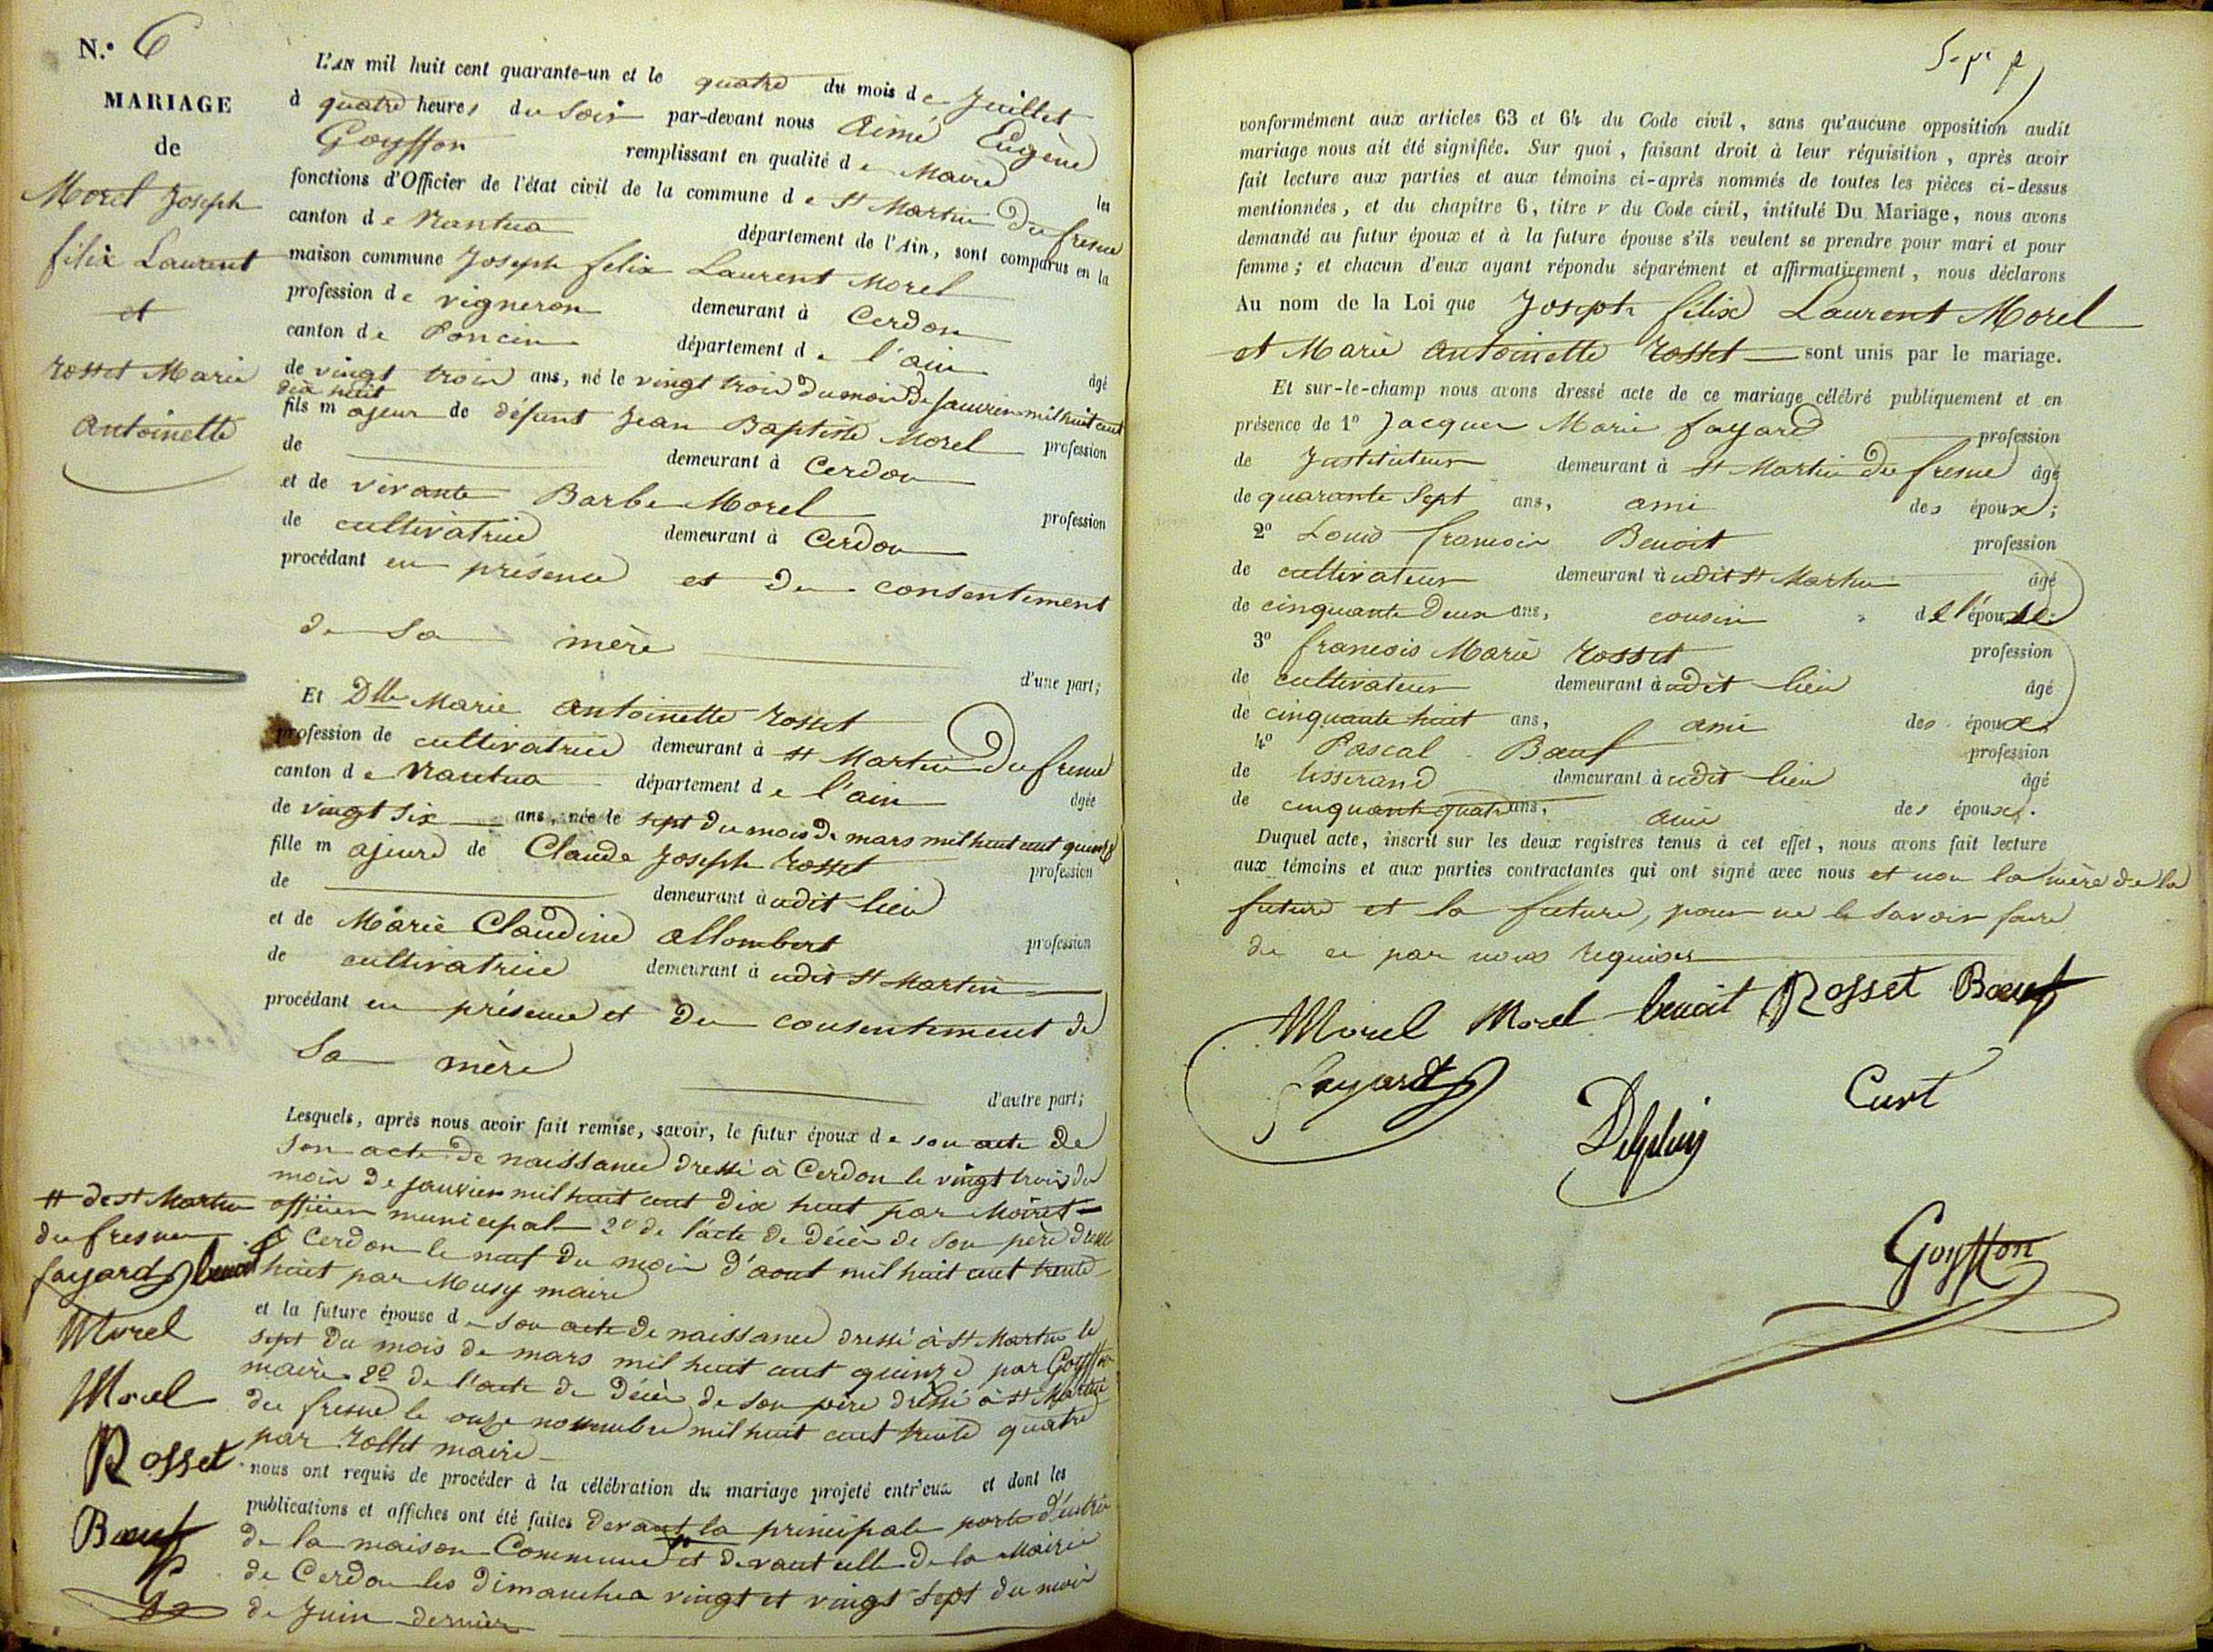 N.° 6
MARIAGE
de
Morel Joseph
félix Laurent
et
Rosset Marie
Antoinette
L'AN mil huit cent quarante-un et le quatre du mois de Juillet
à quatre heures du Soir par-devant nous Aimé Eugène
Goyffon remplissant en qualité de Maire les
fonctions d'Officier de l'état civil de la commune de St Martin Du fresne
canton de Nantua département de l'Ain, sont comparus en la
maison commune Joseph felix Laurent Morel
profession de vigneron demeurant à Cerdon
canton de Poncin département de l'ain âgé
de vingt trois ans, né le vingt trois du mois De Janvier mil huit cent
dix huit
fils majeur de défunt Jean Baptiste Morel profession
de demeurant à Cerdon
et de vivante Barbe Morel profession
de cultivatrice demeurant à Cerdon
procédant en présence et du consentement
de Sa mère
d'une part;
Et Dlle Marie Antoinette Rosset
profession de cultivatrice demeurant à St Martin Du fresne
canton de Nantua département de l'ain âgée
de vingt Six ans, née le sept du mois De mars mil huit cent quinze
fille majeure de Claude Joseph Rosset profession
de demeurant àudit lieu
et de Marie Claudine Allombert profession
de cultivatrice demeurant à udit St Martin
procédant en présence et Du consentement de
Sa mère
d'autre part;
Lesquels, après nous avoir fait remise, savoir, le futur époux de son acte de
son acte de naissance dressé à Cerdon le vingt trois du
mois De janvier mil huit cent dix huit par Moiret
officier municipal 2° de l'acte de décès de Son père dressé
à Cerdon le neuf Du mois d'aout mil huit cent trente
huit par Musy maire
et la future épouse de Son acte De naissance dressé à St Martin le
sept du mois de mars mil huit cent quinze par Goyffon
maire 2° de l'acte de Décès de Son père dressé à St Martin
du fresne le onze novembre mil huit cent trente quatre
par Rosset maire
nous ont requis de procéder à la célébration du mariage projeté entr'eux et dont les
publications et affiches ont été faites devant la principale porte d'entrée
de la maison Commune # et devant celle De la Mairie
de Cerdon les Dimanches vingt et vingt Sept du mois
de Juin dernier
# de St Martin
du fresne
fayard benoit
Morel
Morel
Rosset
Bœuf
conformément aux articles 63 et 64 du Code civil, sans qu'aucune opposition audit
mariage nous ait été signifiée. Sur quoi, faisant droit à leur réquisition, après avoir
fait lecture aux parties et aux témoins ci-après nommés de toutes les pièces ci-dessus
mentionnées, et du chapitre 6, titre v du Code civil, intitulé Du Mariage, nous avons
demandé au futur époux et à la future épouse s'ils veulent se prendre pour mari et pour
femme; et chacun d'eux ayant répondu séparément et affirmativement, nous déclarons
Au nom de la Loi que Joseph félix Laurent Morel
et Marie Antoinette Rosset sont unis par le mariage.
Et sur-le-champ nous avons dressé acte de ce mariage célébré publiquement et en
présence de 1° Jacques Marie fayard profession
de Instituteur demeurant à St Martin Du fresne âgé
de quarante Sept ans, ami des époux;
2° Louis françois Benoit profession
de cultivateur demeurant àudit St Martin âgé
de cinquante Deux ans, cousin de l'épouse.
3° françois Marie Rosset profession
de cultivateur demeurant àudit lieu âgé
de cinquante huit ans, ami des époux.
4° Pascal Bœuf profession
de tisserand demeurant àudit lieu âgé
de cinquante quatre ans, ami des époux.
Duquel acte, inscrit sur les deux registres tenus à cet effet, nous avons fait lecture
aux témoins et aux parties contractantes qui ont signé avec nous et non la mère de la
future et la future, pour ne le Savoir faire
de ce par nous requises
Morel Morel benoit Rosset Bœuf
fayard
Curt
Goyffon